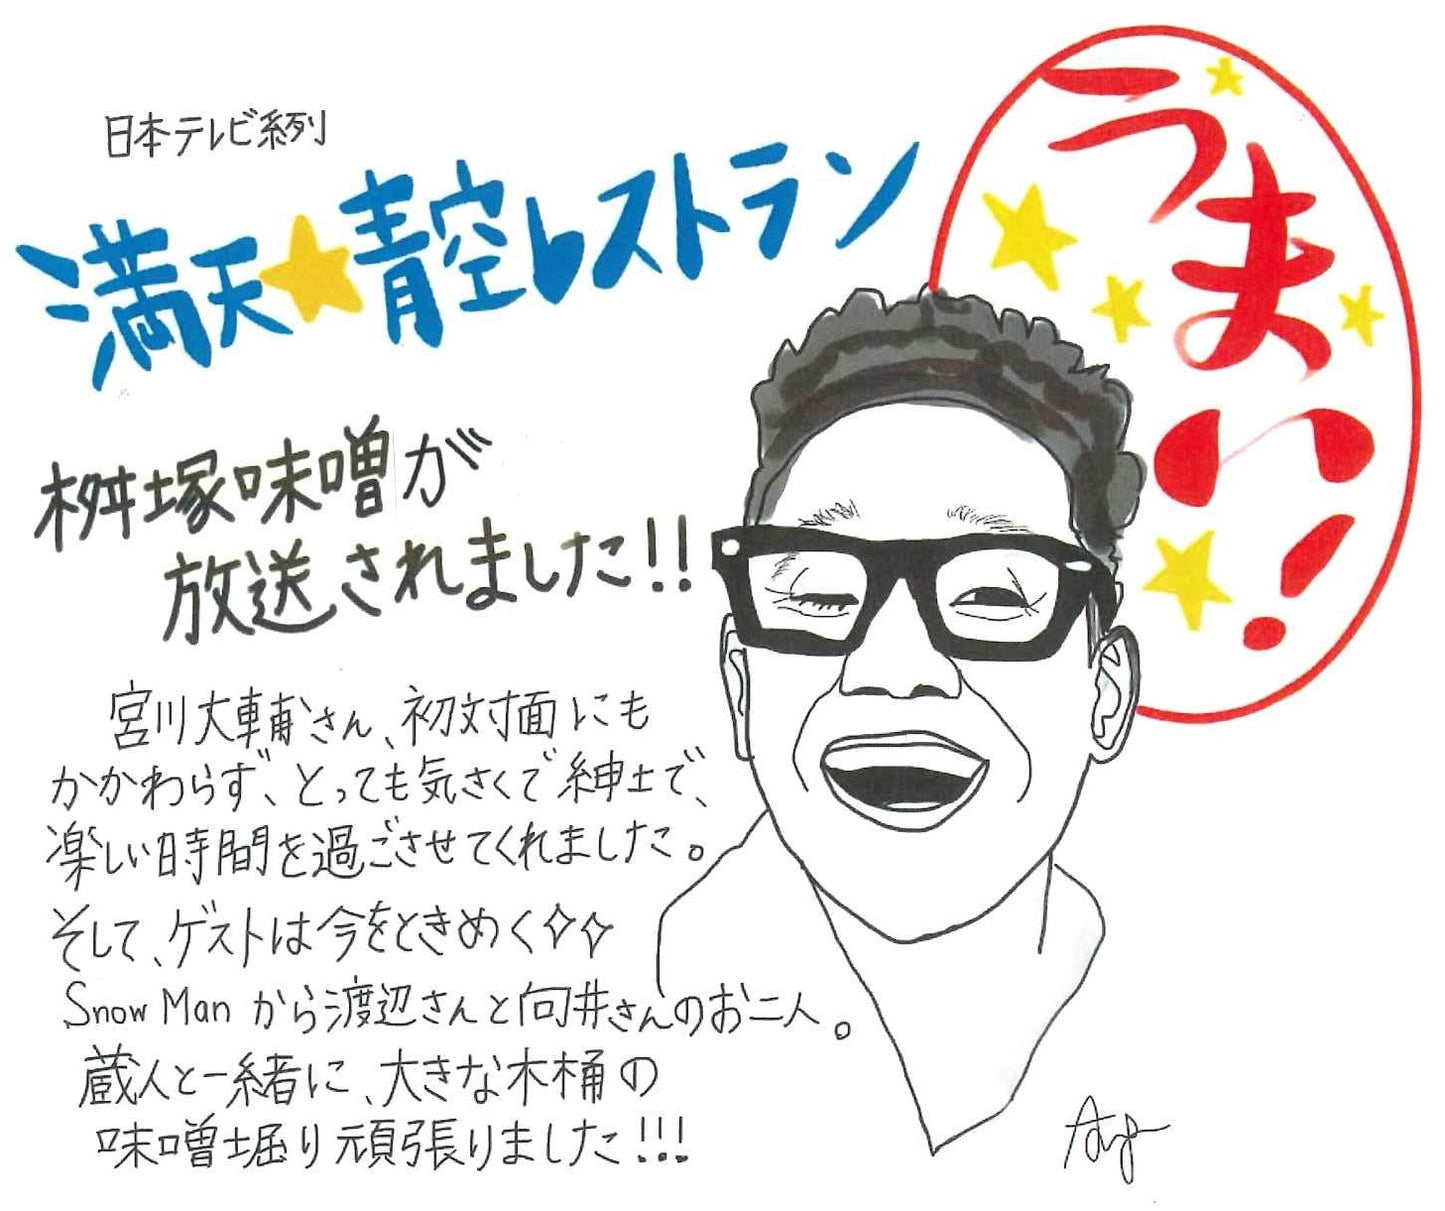 日本テレビ系列
満天★青空レストラン
うまい!
桝塚味噌が
放送されました!!
宮川大輔さん、初対面にも
かかわらず、とっても気さくで紳士で、
楽しい時間を過ごさせてくれました。
そして、ゲストは今をときめく✧✧
Snow Man から渡辺さんと向井さんのお二人。
蔵人と一緒に、大きな木桶の
味噌堀り頑張りました!!!